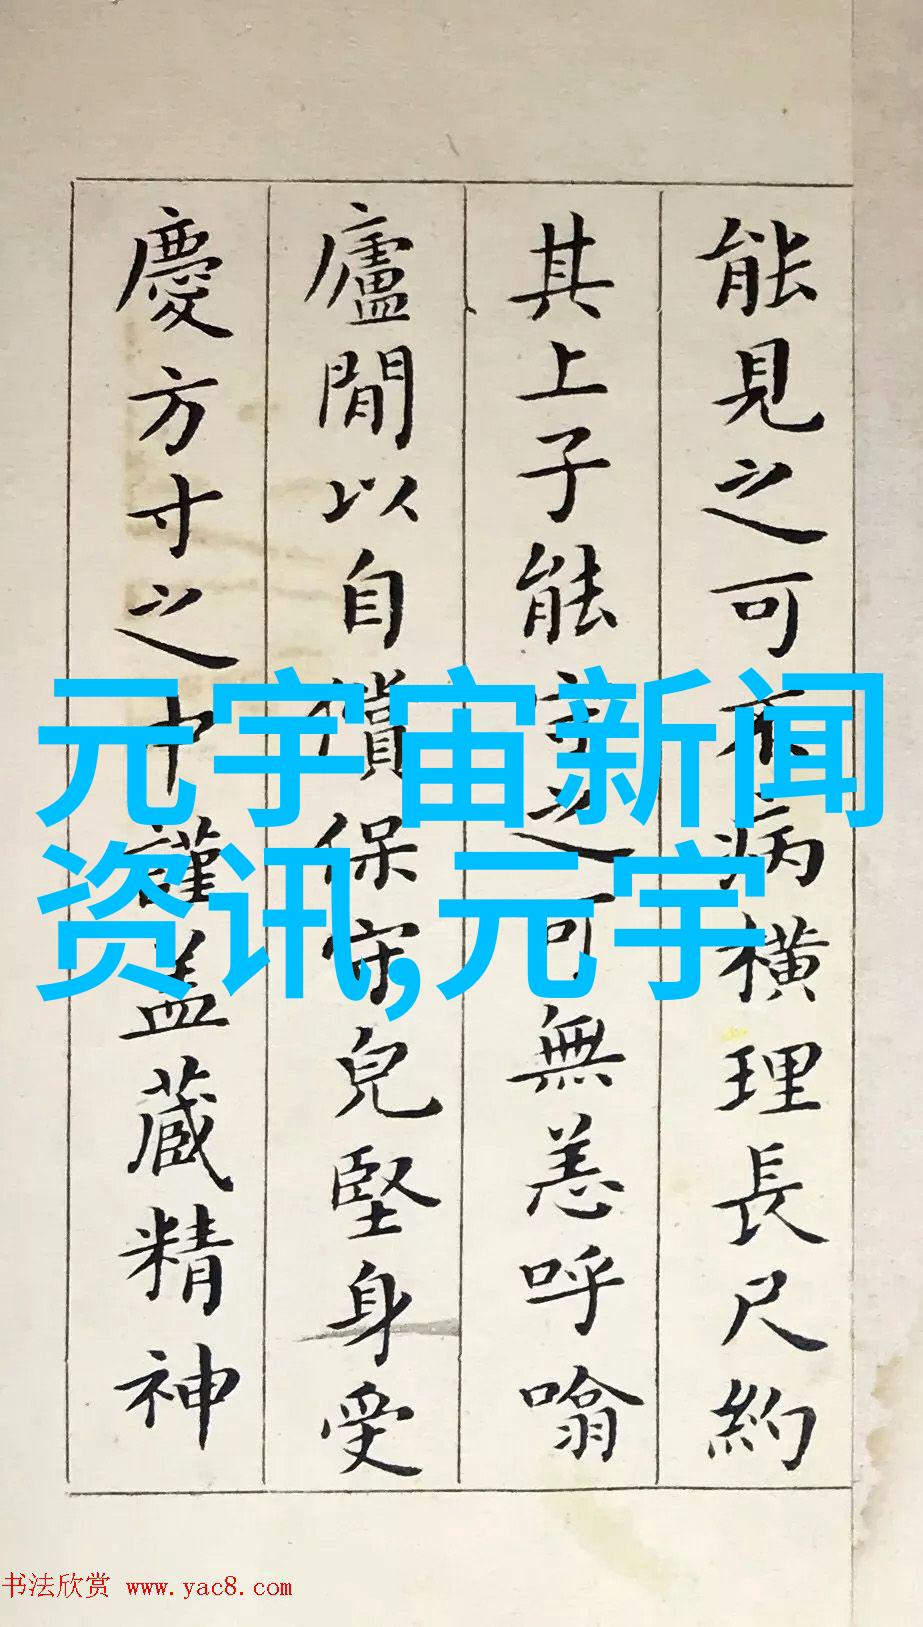 能見之可不病横理長尺約
其上子能守之可無恙呼噏
廬間以自償保守皃堅身受
慶方寸之中謹盖蔵精神
元宇宙新闻
资讯,元宇
书法欣赏 www.yac8.com